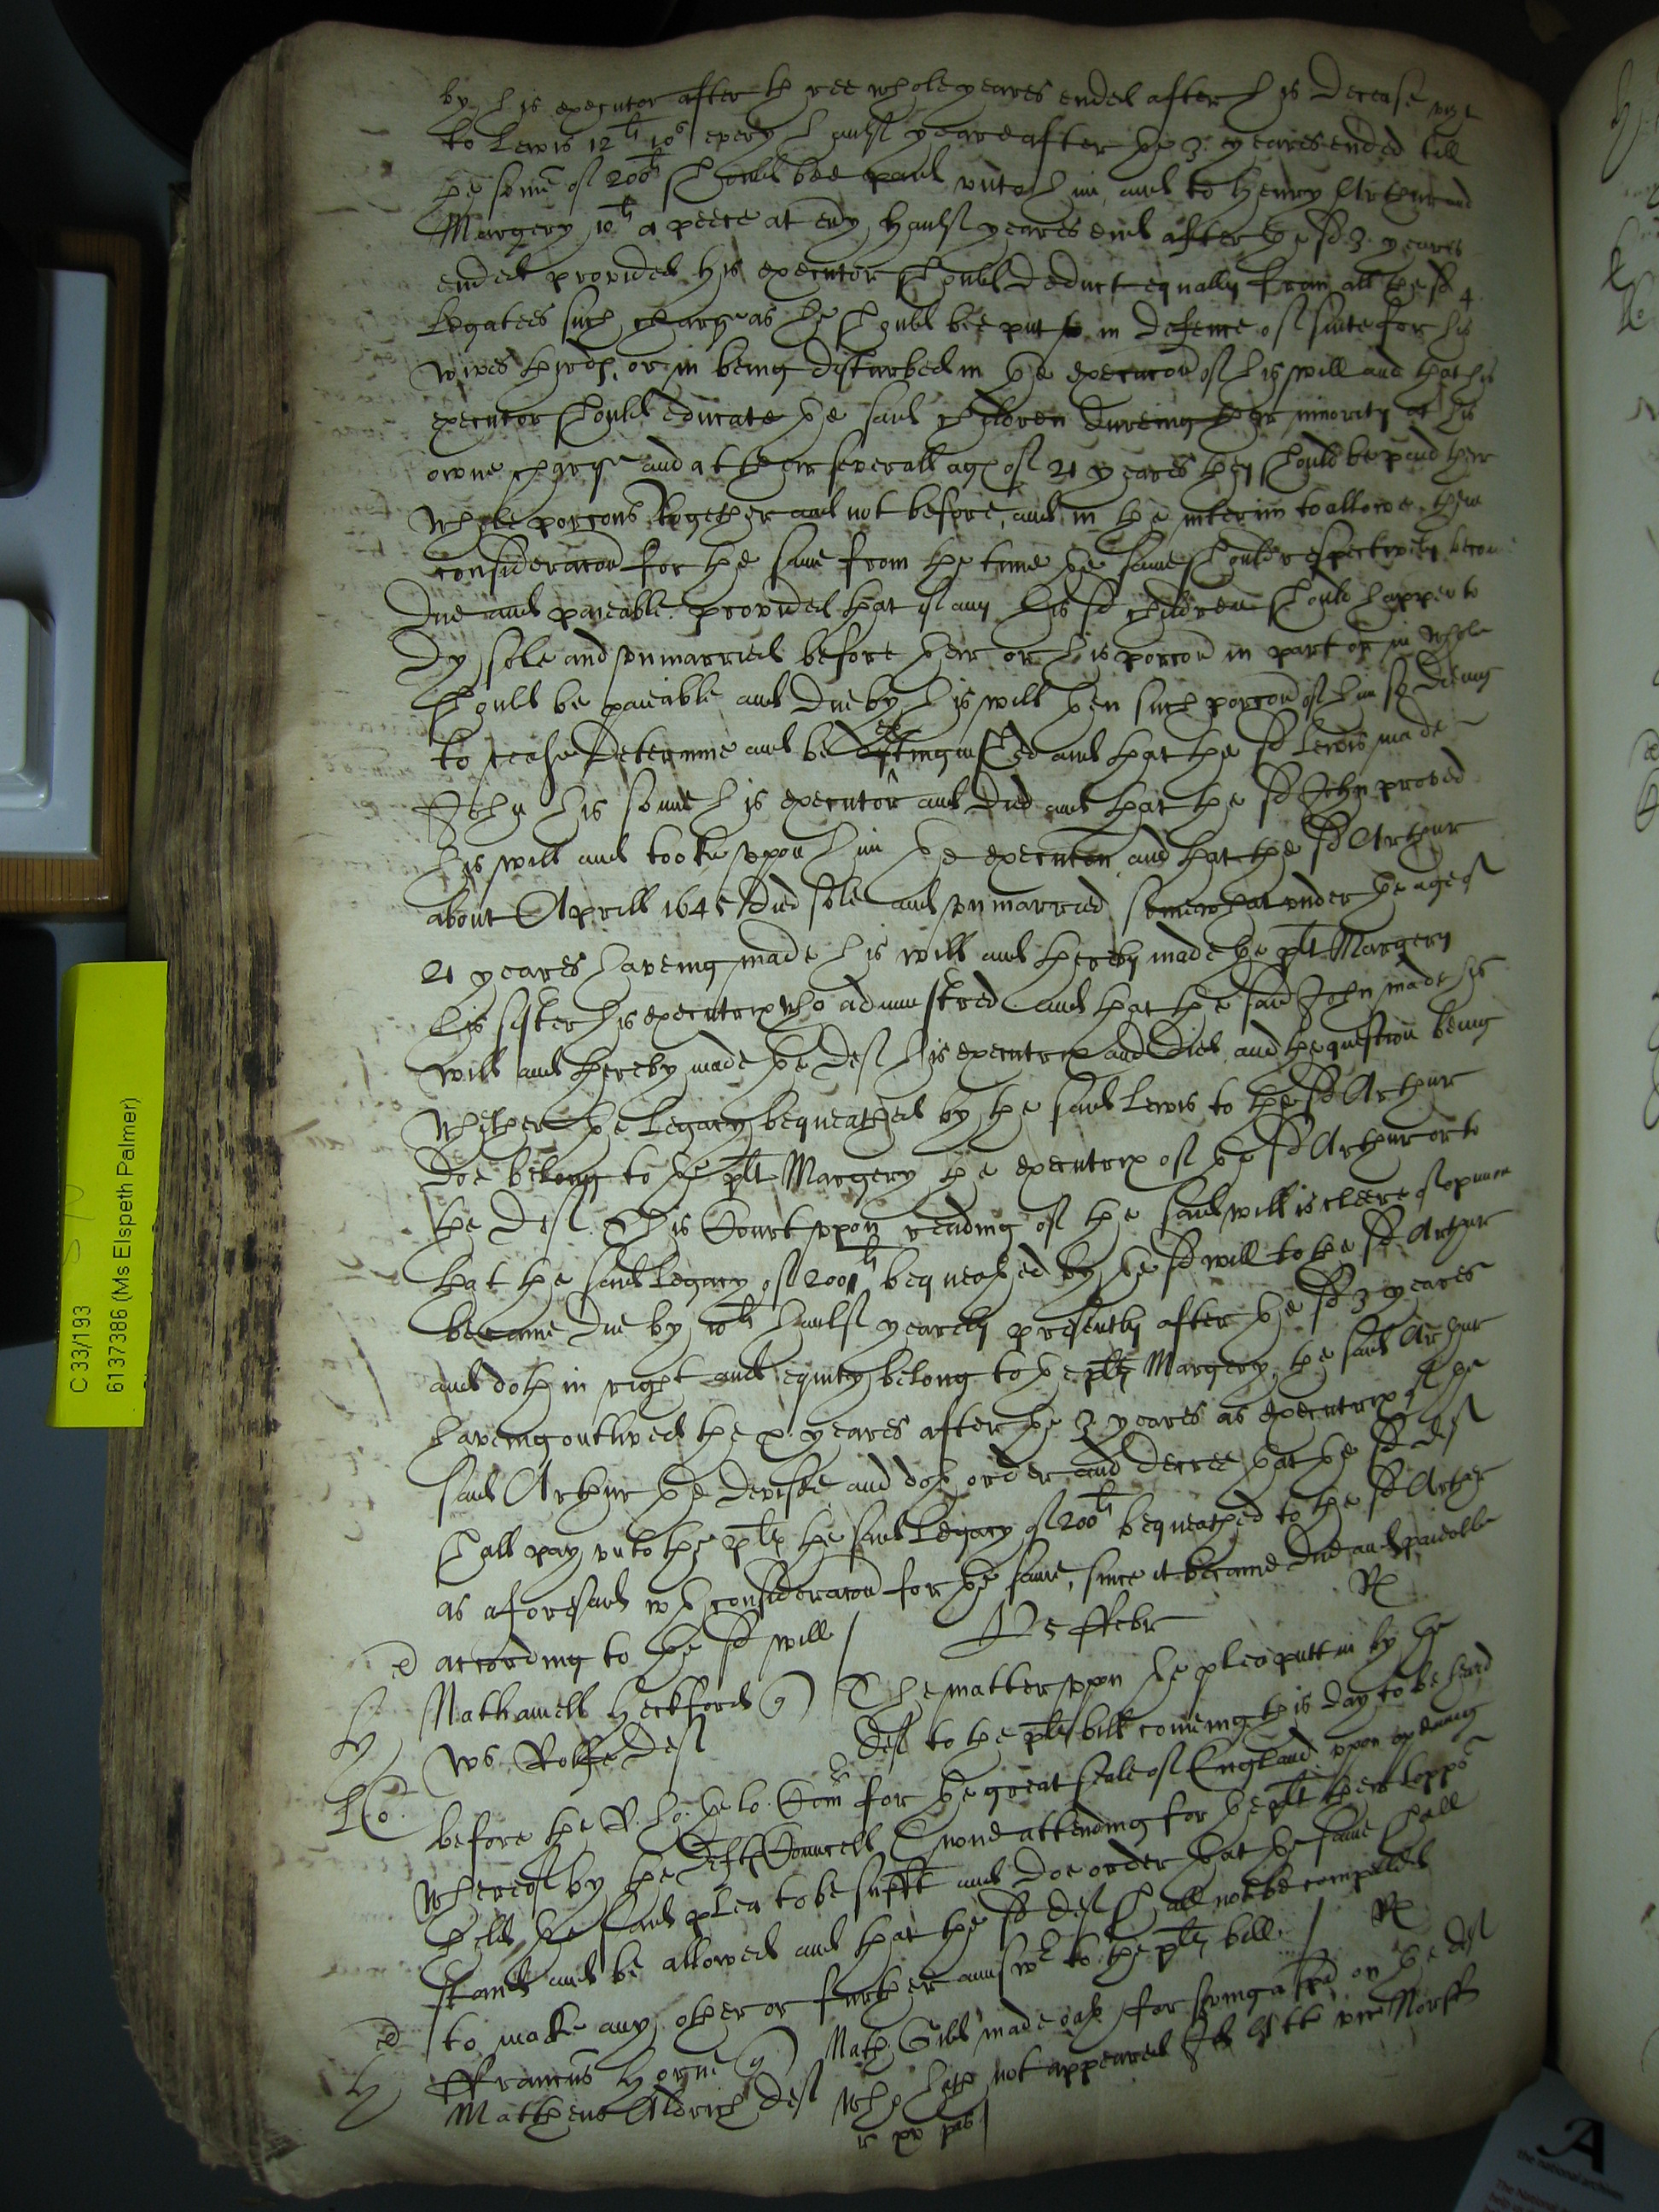 by his executor after three whole yeares ended after his decease vizt
to Lewis 12li 10s every haulf yeare after ye 3 yeares ended till
the some of 200li should bee paid unto him, and to Henry Arthur and
Margery 10li a peece at eny haulf yeares end after the sd 3 yeares
ended provided his executor should deduct equally from all the sd 4
Legatees such charge as he should bee put to in defence of suite for his
wives thirds, or in being disturbed in ye execucon of his will and that his
executor should educate ye said children dureing their minority at his
owne charge and at their severall ages of 21 yeares they should be paid their
whole porcons together and not before, and in the interim to allowe them
consideracon for the same from the time ye same should respectively become
due and paieable provided that if any his sd children should happen to
dy sole and unmarried before her or his porcon in part or in whole
should be paieable and due by his will then such porcon of him so dieing
to cease determine and be extinguished and that the sd Lewis made
John his sonne his executor and died and that the sd John proved
his will and tooke upon him ye execucon and that the sd Arthur
about Aprill 1645 died sole and unmarried somewhat under ye age of
21 yeares haveing made his will and thereby made ye plt Margery
his sister his executrix who administred and that the said John made his
will and thereby made ye deft his executrix and died, and the question being
whether ye Legacy bequeathed by the said Lewis to the sd Arthur
doe belong to ye plt Margery the executrix of ye sd Arthur or to
the deft This Court upon reading of the said will is cleere of opinion
that the said Legacy of 200li bequeathed by ye sd will to the sd Arthur
became due by 10li haulf yearely presently after ye sd 3 yeares
and doth in right and equity belong to ye plt Margery, the said Arthur
haveing outlived the x yeares after the 3 yeares as executrix of the
said Arthur ye devisee and doth order and decree that ye sd deft
shall pay unto the plts the said Legacy of 200li bequeathed to the sd Arthur
as aforesaid wth consideracon for ye same, since it became due and paieable
according to the sd will /
5 ffebr
Nathaniell Heckford The matter upon the plea putt in by the
H ws. Rolfe deft deft to the plts bill comeing this day to be heard
before the R. ho: ye lo: Com for ye great seale of England upon opening
whereof by the defts Councell none attending for ye plt their lopps
held ye said plea to be sufft and doe order that ye same shall
stand and be allowed and that the sd deft shall not be compelled
to make any other or further answe to the plts bill. /
ed
H ffrancus Horne Math: Gibbs made oath for serving a spa on ye deft
Mathewe Aldrich deft who hath not appeared
C 33/193
6137386 (Ms Elspeth Palmer)
the national archives